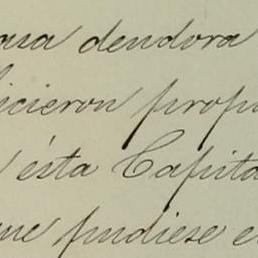 casa deudora
icieron propu
ésta Capita
ue pudiese e